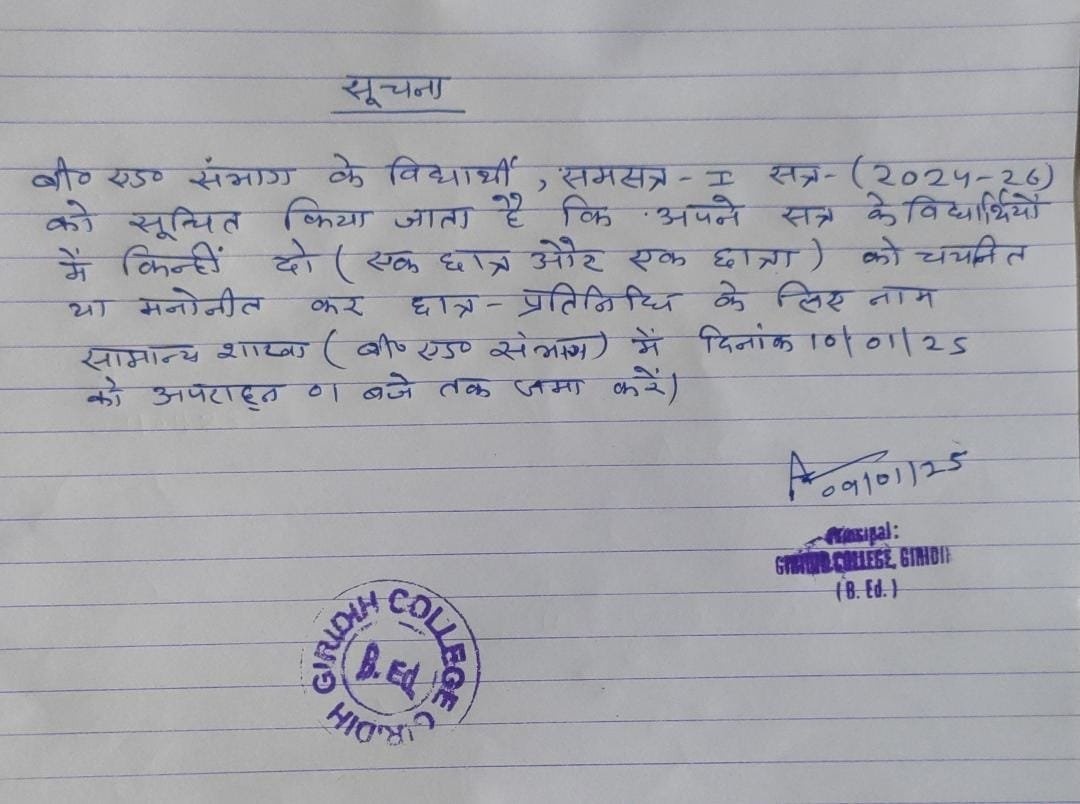 सूचना
बी० एड० संभाग के विद्यार्थी, समसत्र - I सत्र - (2024-26)
को सूचित किया जाता है कि अपने सत्र के विद्यार्थियों
में किन्हीं दो ( एक छात्र और एक छात्रा ) को चयनित
या मनोनीत कर छात्र - प्रतिनिधि के लिए नाम
सामान्य शाखा ( बी० एड० संभाग ) में दिनांक 10/01/25
को अपराह्न 01 बजे तक जमा करें।
09/01/25
Principal:
GIRIDIH COLLEGE, GIRIDIH
( B. Ed. )
GIRIDIH COLLEGE GIRIDIH
B. Ed